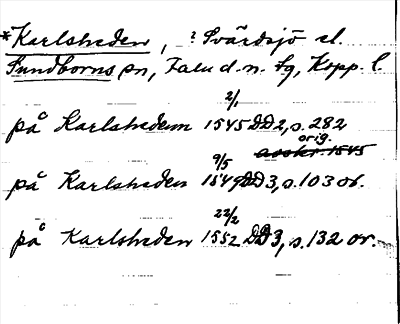 *Karlsheden, ? Svärdsjö el.
Sundborns sn, Falu d.n. fg, Kopp. l.
2/1
på Karlshedem 1545 DD2, s. 282
orig.
avskr. 1545
9/5
på Karlsheden 1549 DD3, s. 103 or.
22/2
på Karlsheden 1552 DD3, s. 132 or.